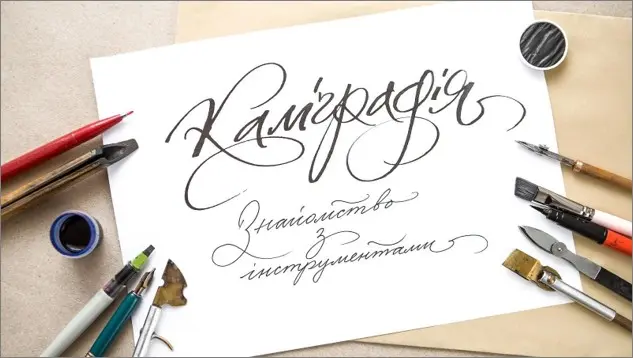 Каліграфія
Знайомство
з
інструментами